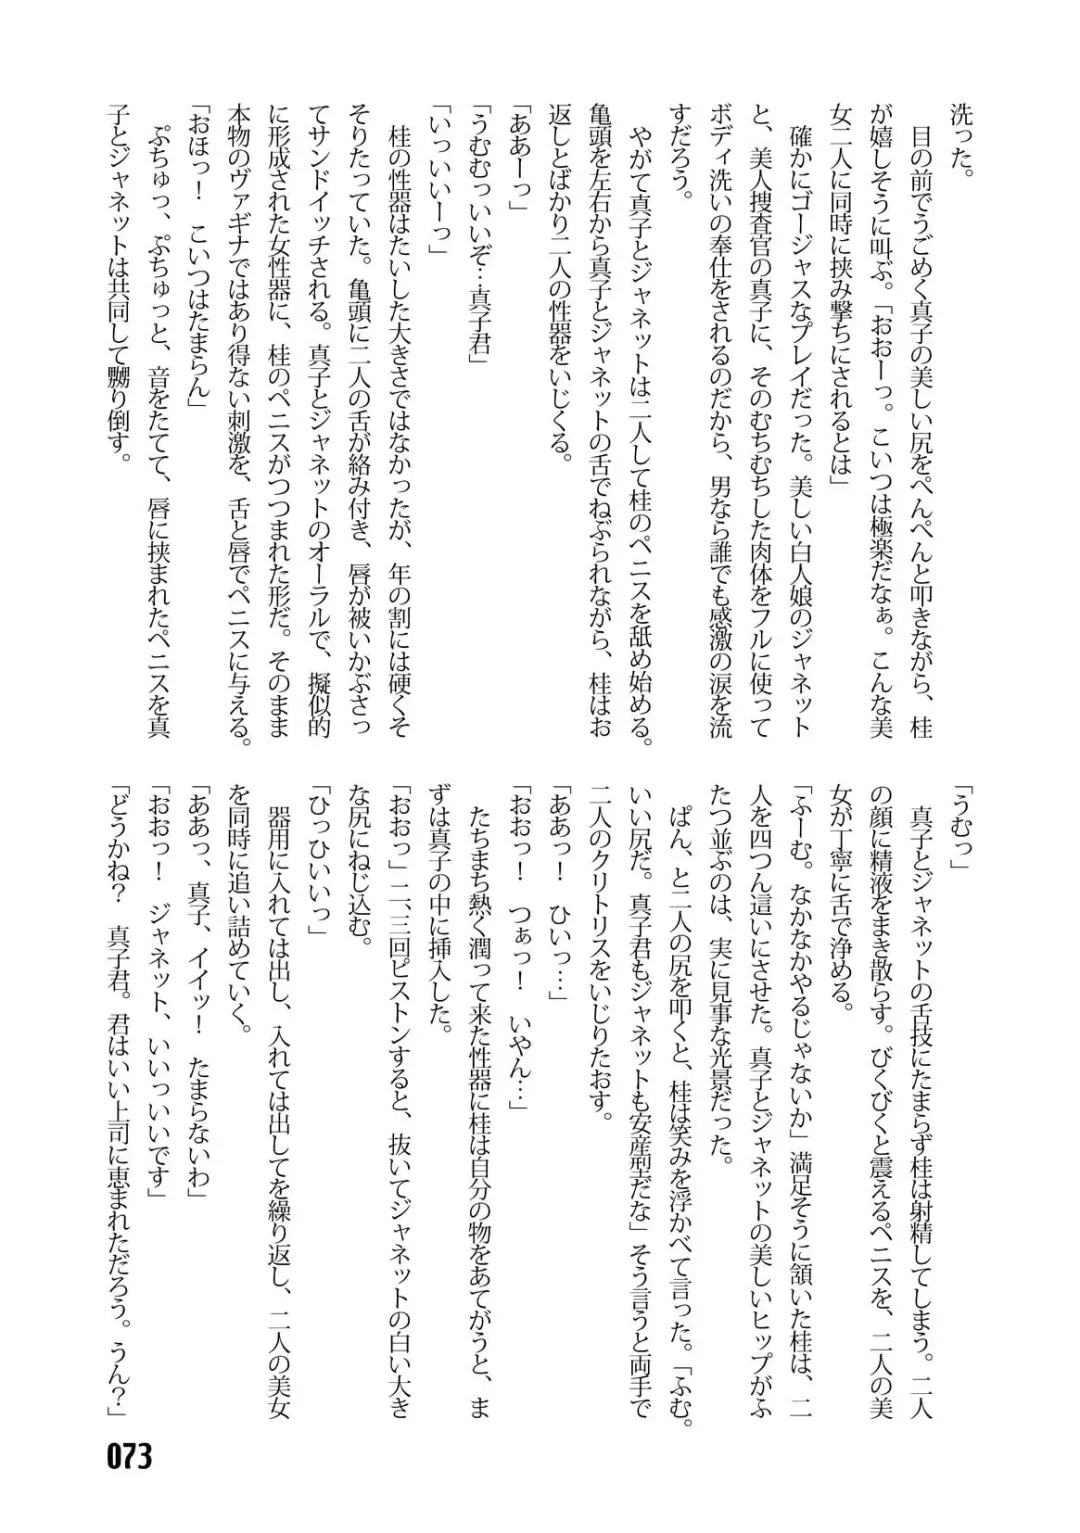 洗った。
目の前でうごめく真子の美しい尻をぺんぺんと叩きながら、桂
が嬉しそうに叫ぶ。「おおーっ。こいつは極楽だなぁ。こんな美
女二人に同時に挟み撃ちにされるとは」
確かにゴージャスなプレイだった。美しい白人娘のジャネット
と、美人捜査官の真子に、そのむちむちした肉体をフルに使って
ボディ洗いの奉仕をされるのだから、男なら誰でも感激の涙を流
すだろう。
やがて真子とジャネットは二人して桂のペニスを舐め始める。
亀頭を左右から真子とジャネットの舌でねぶられながら、桂はお
返しとばかり二人の性器をいじくる。
「ああーっ」
「うむむっいいぞ…真子君」
「いっいいーっ」
桂の性器はたいした大きさではなかったが、年の割には硬くそ
そりたっていた。亀頭に二人の舌が絡み付き、唇が被いかぶさっ
てサンドイッチされる。真子とジャネットのオーラルで、擬似的
に形成された女性器に、桂のペニスがつつまれた形だ。そのまま
本物のヴァギナではあり得ない刺激を、舌と唇でペニスに与える。
「おほっ！　こいつはたまらん」
ぷちゅっ、ぷちゅっと、音をたてて、唇に挟まれたペニスを真
子とジャネットは共同して嬲り倒す。
「うむっ」
真子とジャネットの舌技にたまらず桂は射精してしまう。二人
の顔に精液をまき散らす。びくびくと震えるペニスを、二人の美
女が丁寧に舌で浄める。
「ふーむ。なかなかやるじゃないか」満足そうに頷いた桂は、二
人を四つん這いにさせた。真子とジャネットの美しいヒップがふ
たつ並ぶのは、実に見事な光景だった。
ぱん、と二人の尻を叩くと、桂は笑みを浮かべて言った。「ふむ。
いい尻だ。真子君もジャネットも安産型だな」そう言うと両手で
二人のクリトリスをいじりたおす。
「ああっ！　ひいっ…」
「おおっ！　つぁっ！　いやん…」
たちまち熱く潤って来た性器に桂は自分の物をあてがうと、ま
ずは真子の中に挿入した。
「おおっ」二、三回ピストンすると、抜いてジャネットの白い大き
な尻にねじ込む。
「ひっひいいっ」
器用に入れては出し、入れては出してを繰り返し、二人の美女
を同時に追い詰めていく。
「ああっ、真子、イイッ！　たまらないわ」
「おおっ！　ジャネット、いいっいいです」
「どうかね？　真子君。君はいい上司に恵まれただろう。うん？」
073